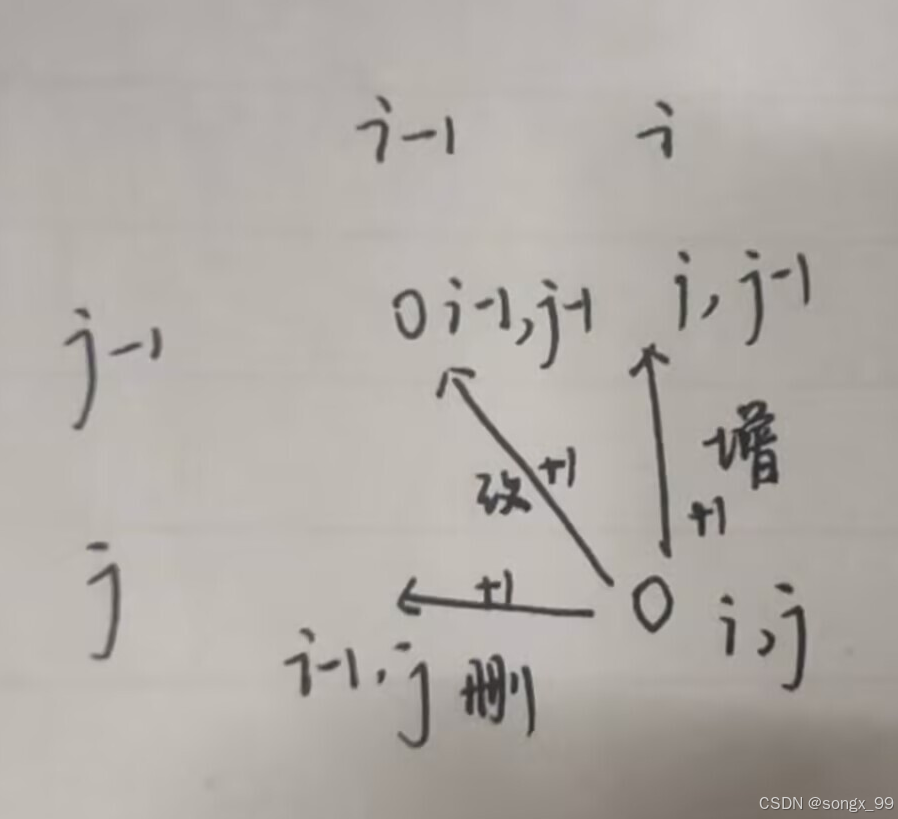 i-1 i
j-1 0 i-1,j-1 i,j-1
改 +1 增
+1
j +1 0 i,j
i-1,j 删
CSDN @songx_99